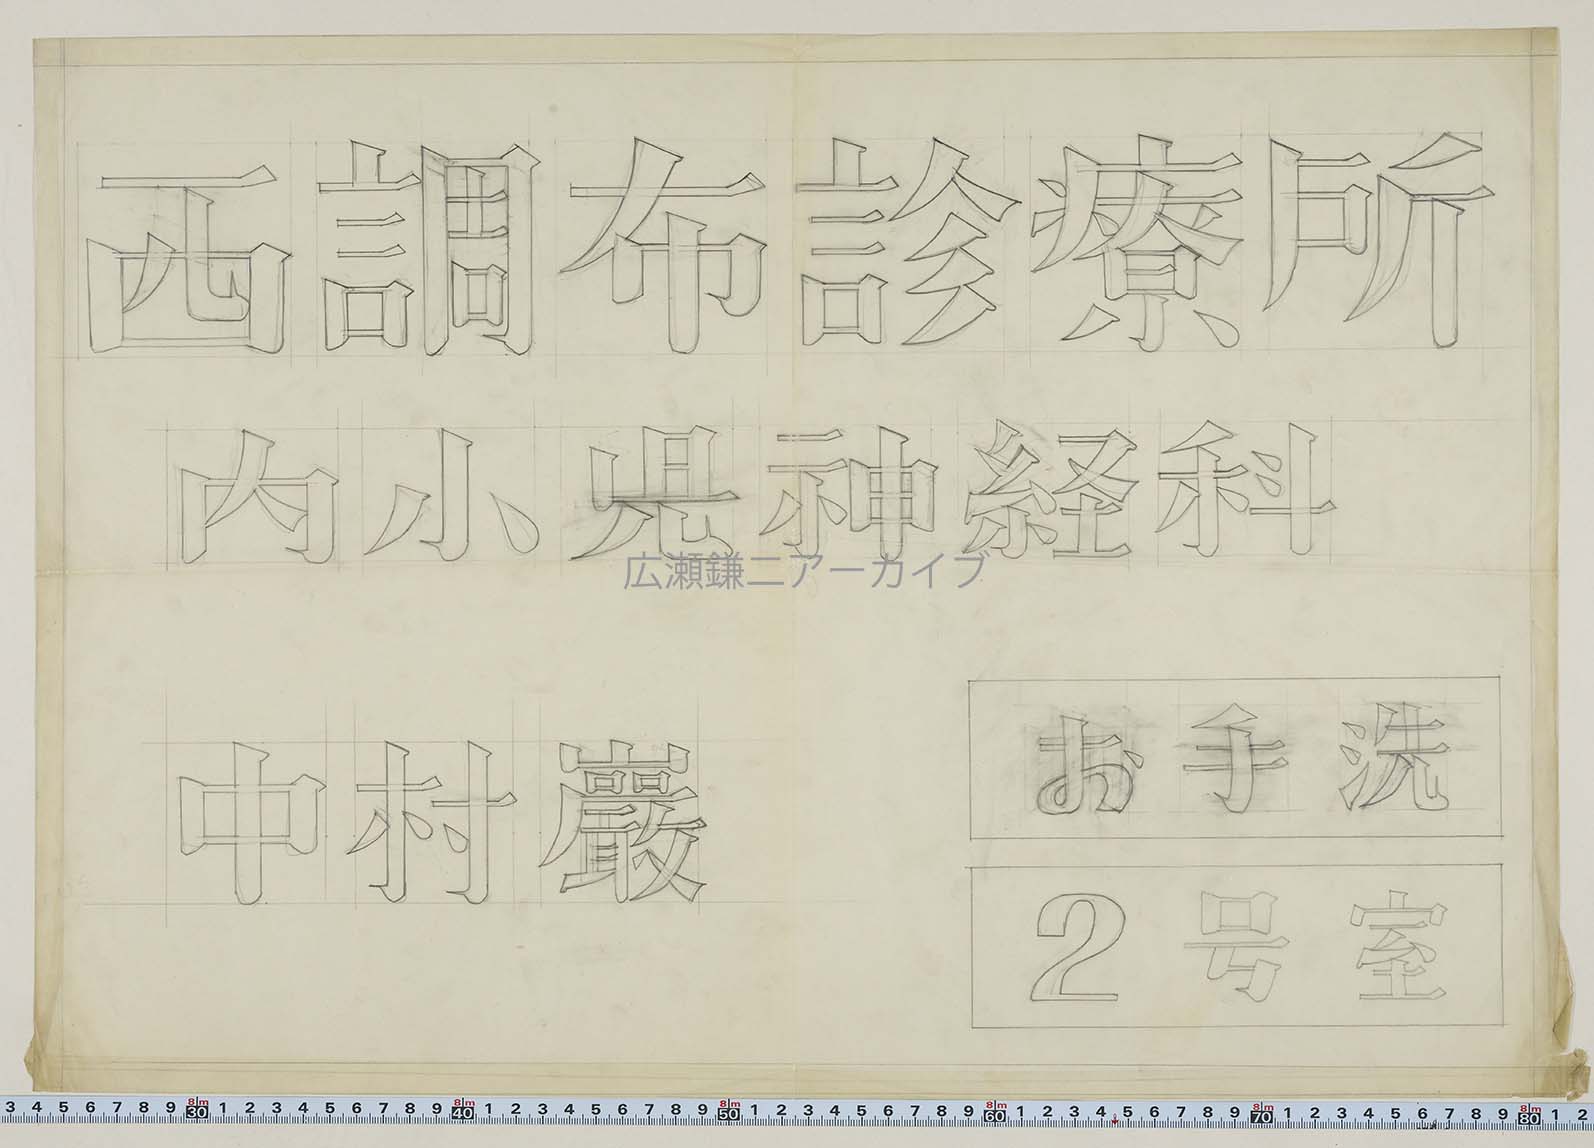 西調布診療所
内小児神経科
広瀬鎌二アーカイブ
中村巖
お手洗
2号室
3 4 5 6 7 8 9 8m 30 1 2 3 4 5 6 7 8 9 8m 40 1 2 3 4 5 6 7 8 9 8m 50 1 2 3 4 5 6 7 8 9 8m 60 1 2 3 4 5 6 7 8 9 8m 70 1 2 3 4 5 6 7 8 9 8m 80 1 2